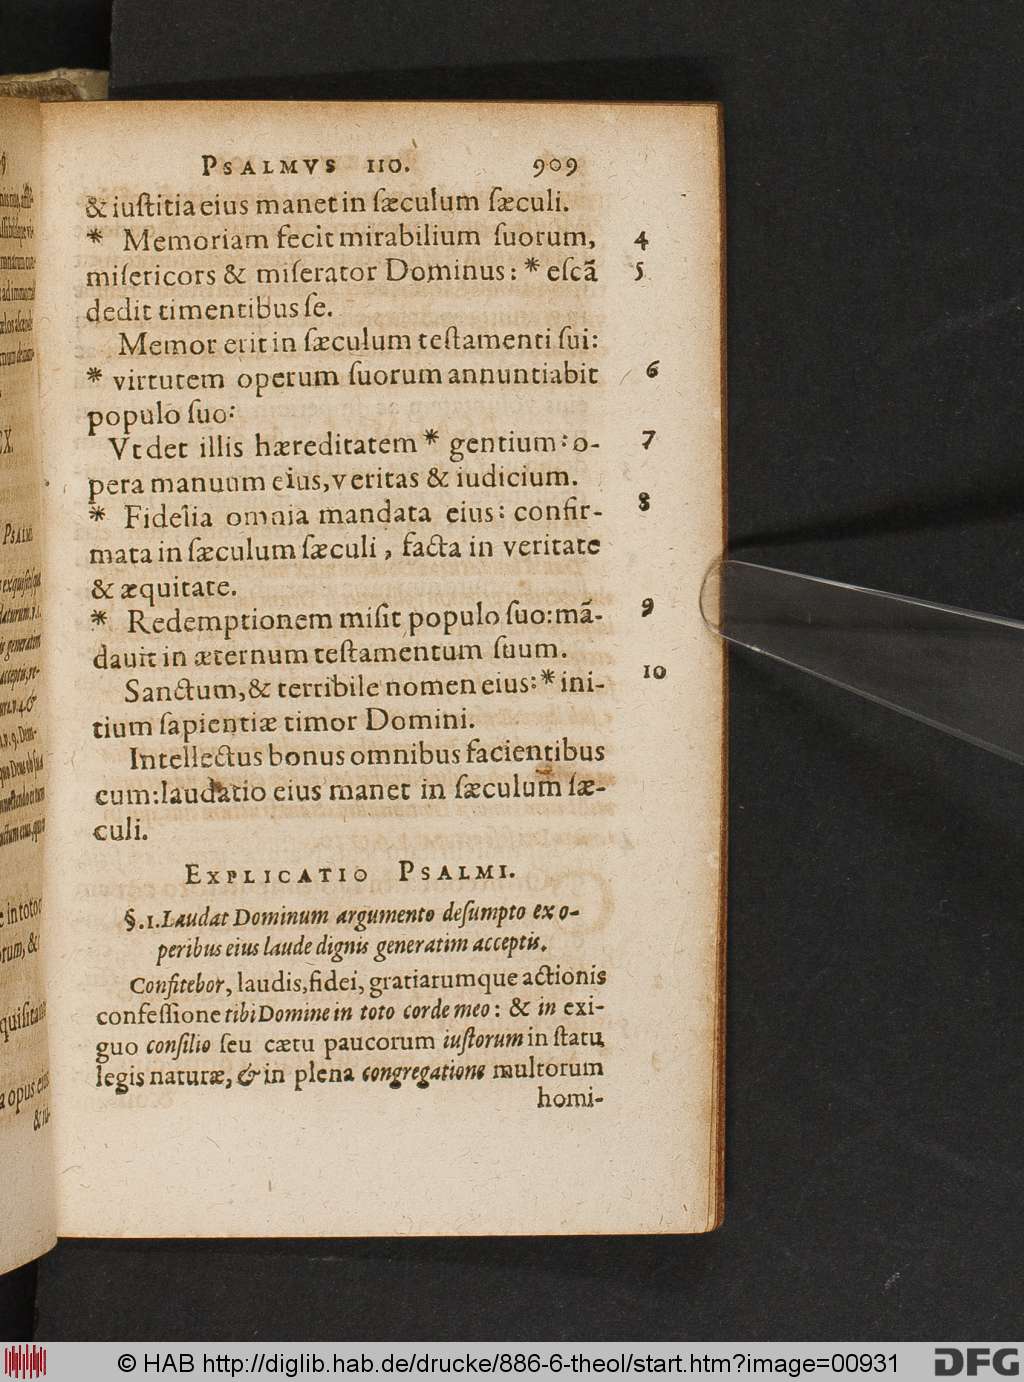 PSALMVS 110. 909
& iuſtitia eius manet in ſæculum ſæculi.
* Memoriam fecit mirabilium ſuorum, 4
miſericors & miſerator Dominus: * eſcã 5
dedit timentibus ſe.
Memor erit in ſæculum teſtamenti ſui:
* virtutem operum ſuorum annuntiabit 6
populo ſuo:
Vt det illis hæreditatem * gentium: o- 7
pera manuum eius, veritas & iudicium.
* Fidelia omnia mandata eius: confir- 8
mata in ſæculum ſæculi, facta in veritate
& æquitate.
* Redemptionem miſit populo ſuo: mã- 9
dauit in æternum teſtamentum ſuum.
Sanctum, & terribile nomen eius: * ini- 10
tium ſapientiæ timor Domini.
Intellectus bonus omnibus facientibus
eum: laudatio eius manet in ſæculum ſæ-
culi.
EXPLICATIO PSALMI.
§. 1. Laudat Dominum argumento deſumpto ex o-
peribus eius laude dignis generatim acceptis.
Confitebor, laudis, fidei, gratiarumque actionis
confeſſione tibi Domine in toto corde meo: & in exi-
guo conſilio ſeu cætu paucorum iuſtorum in ſtatu
legis naturæ, & in plena congregatione multorum
homi-
© HAB http://diglib.hab.de/drucke/886-6-theol/start.htm?image=00931
DFG